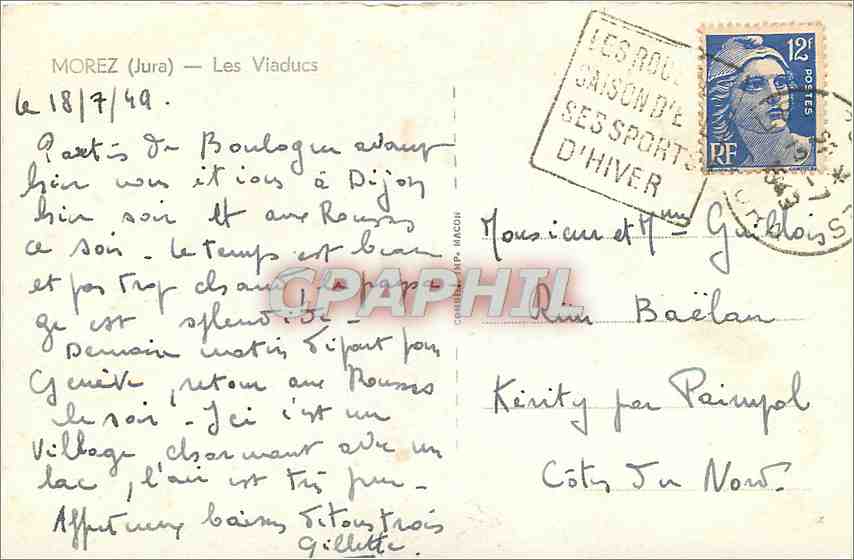 MOREZ (Jura) — Les Viaducs
le 18/7/49.
Partis de Boulogne avant
hier nous étions à Dijon
hier soir et aux Rousses
ce soir - le temps est beau
et pas trop chaud, le paysa-
ge est splendide -
Demain matin départ pour
Genève, retour aux Rousses
le soir - Ici c'est un
village charmant avec un
lac, l'air est très pur -
Affectueux baisers de tous trois
Gillette.
CPAPHIL
COMBIER IMP. MACON
LES ROUS
SAISON D'É
SES SPORTS
D'HIVER
12F
POSTES
RF
Monsieur et Mme Guiblois
Baëlan
Kérity par Paimpol
Côtes du Nord.